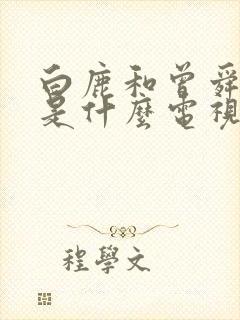 白鹿和曾舜
是什麼電視
程學文